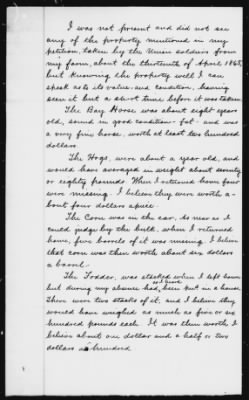 I was not present and did not see
any of the property mentioned in my
petition, taken by the Union soldiers from
my farm, about the thirteenth of April 1865,
but knowing the property well I can
speak as to its value and condition, having
seen it but a short time before it was taken.
The Bay Horse was about eight years
old, sound in good condition - fat - and was
a very fine horse, worth at least two hundred
dollars.
The Hogs, were about a year old, and
would have averaged in weight about seventy
or eighty pounds. When I returned home four
were missing. I believe they were worth a-
bout four dollars apiece.
The Corn was in the ear. As near as I
could judge by the bulk, when I returned
home, five barrels of it was missing. I believe
that corn was then worth about six dollars
a barrel.
The Fodder, was stacked when I left home
but during my absence had been put in a house.
There were two stacks of it, and I believe they
would have weighed as much as five or six
hundred pounds each. It was then worth I
believe about one dollar and a half or two
dollars a hundred